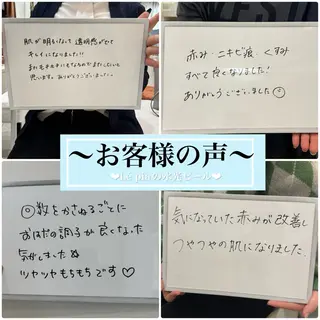 肌が明るくなって透明感がでて
キレイになりました!!
思います。ありがとうございました。
赤み・ニキビ痕・くすみ
すべて良くなりました!
ありがとうございました
〜お客様の声〜
の水光ピール♥
◎数をかさねるごとに
おはだの調子が良くなった
気がしました
ツヤツヤもちもちです♡
気になっていた赤みが改善し
つやつやの肌になりました。